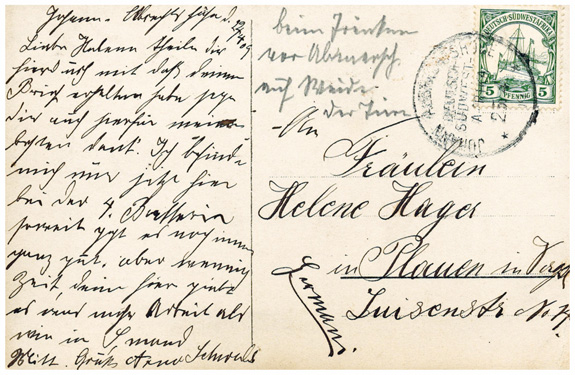 Johann-Albrechtshöhe d. 22/4 09
Liebe Helena theile dir
hierdurch mit daß deinen
Brief erhalten habe sage
dir auch hierfür meinen
besten dank. Ich befinde
mich nur jetzt hier
bei der 4. Batterie
soweit geht es noch immer
ganz gut, aber wenig
Zeit, denn hier giebt
es auch mehr Arbeit als
wie in
Mitt. Gruß Arno
beim Tränken
vor Abmarsch
auf Weide
der Tiere
DEUTSCH-SÜDWESTAFRIKA
5 PFENNIG 5
JOHANN-ALBRECHTSHÖHE
DEUTSCH-
SÜDWEST-
An
Fräulein
Helene Hager
in Plauen in Vogtl
Luisenstr No
Germany.